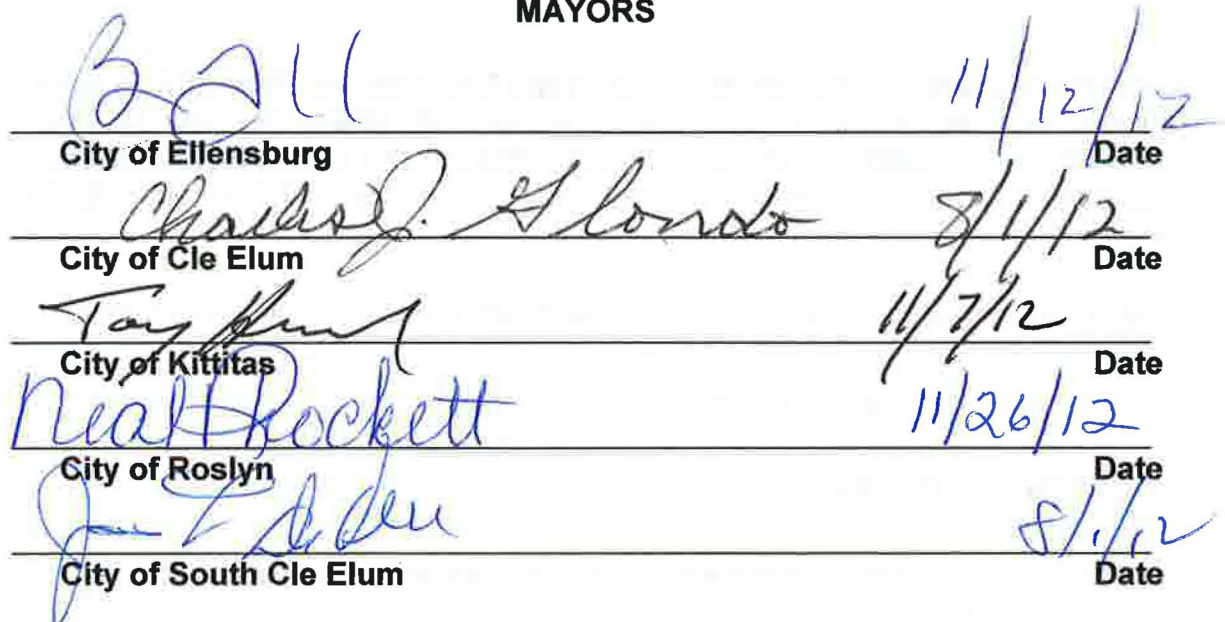 MAYORS
11/12/12
City of Ellensburg Date
Charles J. Glondo 8/1/12
City of Cle Elum Date
11/7/12
City of Kittitas Date
Neal Rockett 11/26/12
City of Roslyn Date
8/1/12
City of South Cle Elum Date